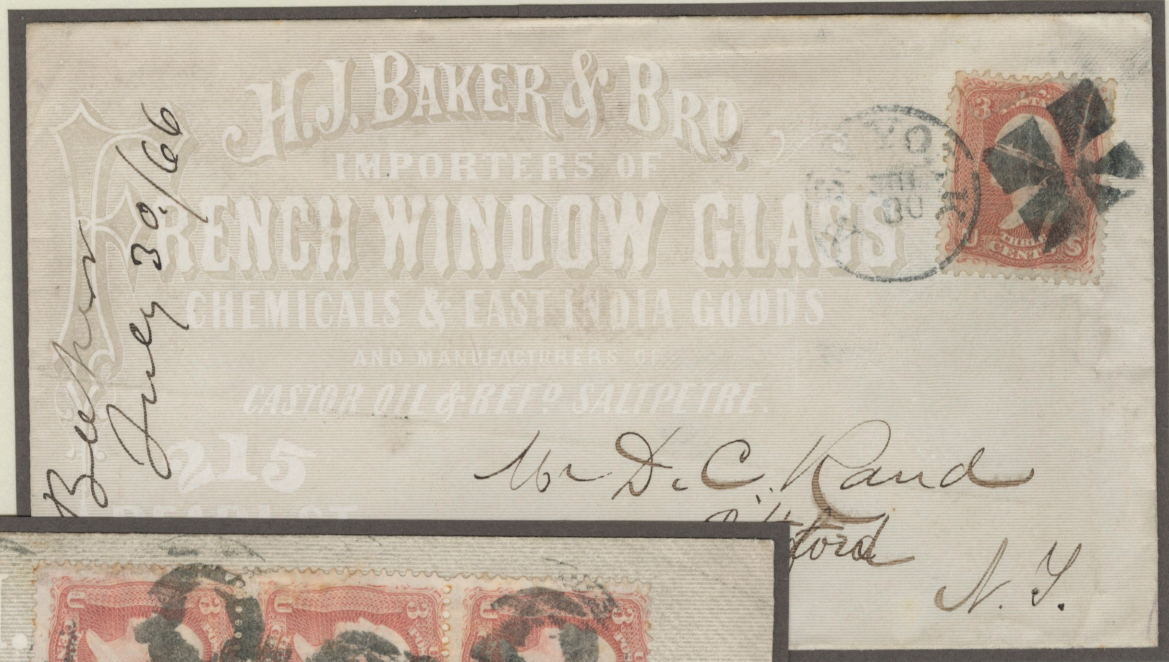 H.J. BAKER & BRO.,
IMPORTERS OF
FRENCH WINDOW GLASS
CHEMICALS & EAST INDIA GOODS
AND MANUFACTURERS OF
CASTOR OIL & REFD SALTPETRE.
215
PEARL ST
July 30./66
NEW YORK
JUL
30
3
U 3 CENTS S
Mr D. C. Rand
N. Y.
U 3
U 3
U 3